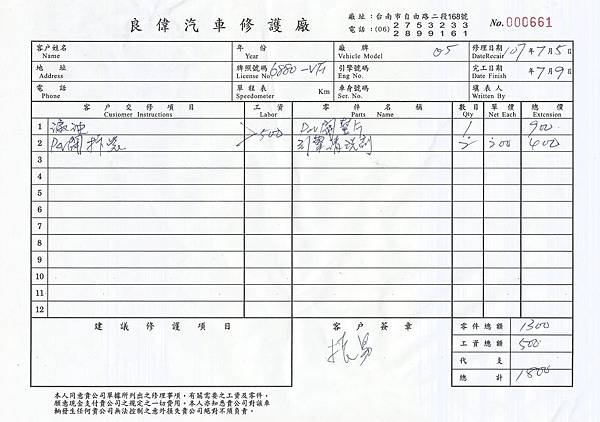 良偉汽車修護廠
廠址：台南市自由路二段168號
電話：(06) 2753233
2899161
No. 000661
客戶姓名 Name 年份 Year 廠牌 Vehicle Model 05 修理日期 DateRecair 107年7月5
地址 Address 牌照號碼 License No. 6880-VH 引擎號碼 Eng No. 完工日期 Date Finish 年7月9
電話 Phone 單程表 Speedometer Km 車身號碼 Ser. No. 填表人 Written By
客戶交修項目 Cusiomer Instructions 工資 Labor 零件名稱 Parts Name 數目 Qty 單價 Net Each 總價 Extcnsion
1 500 1 900
2 2 200 400
3
4
5
6
7
8
9
10
11
12
建議修護項目 客戶簽章 零件總額 1300
工資總額 500
代支
總計 1800
本人同意貴公司單據所列出之修理事項，有關需要之工資及零件，
願意現金支付貴公司之規定之一切費用。本人亦知悉貴公司對該車
輛發生任何貴公司無法控制之意外損失貴公司絕對不須負責。